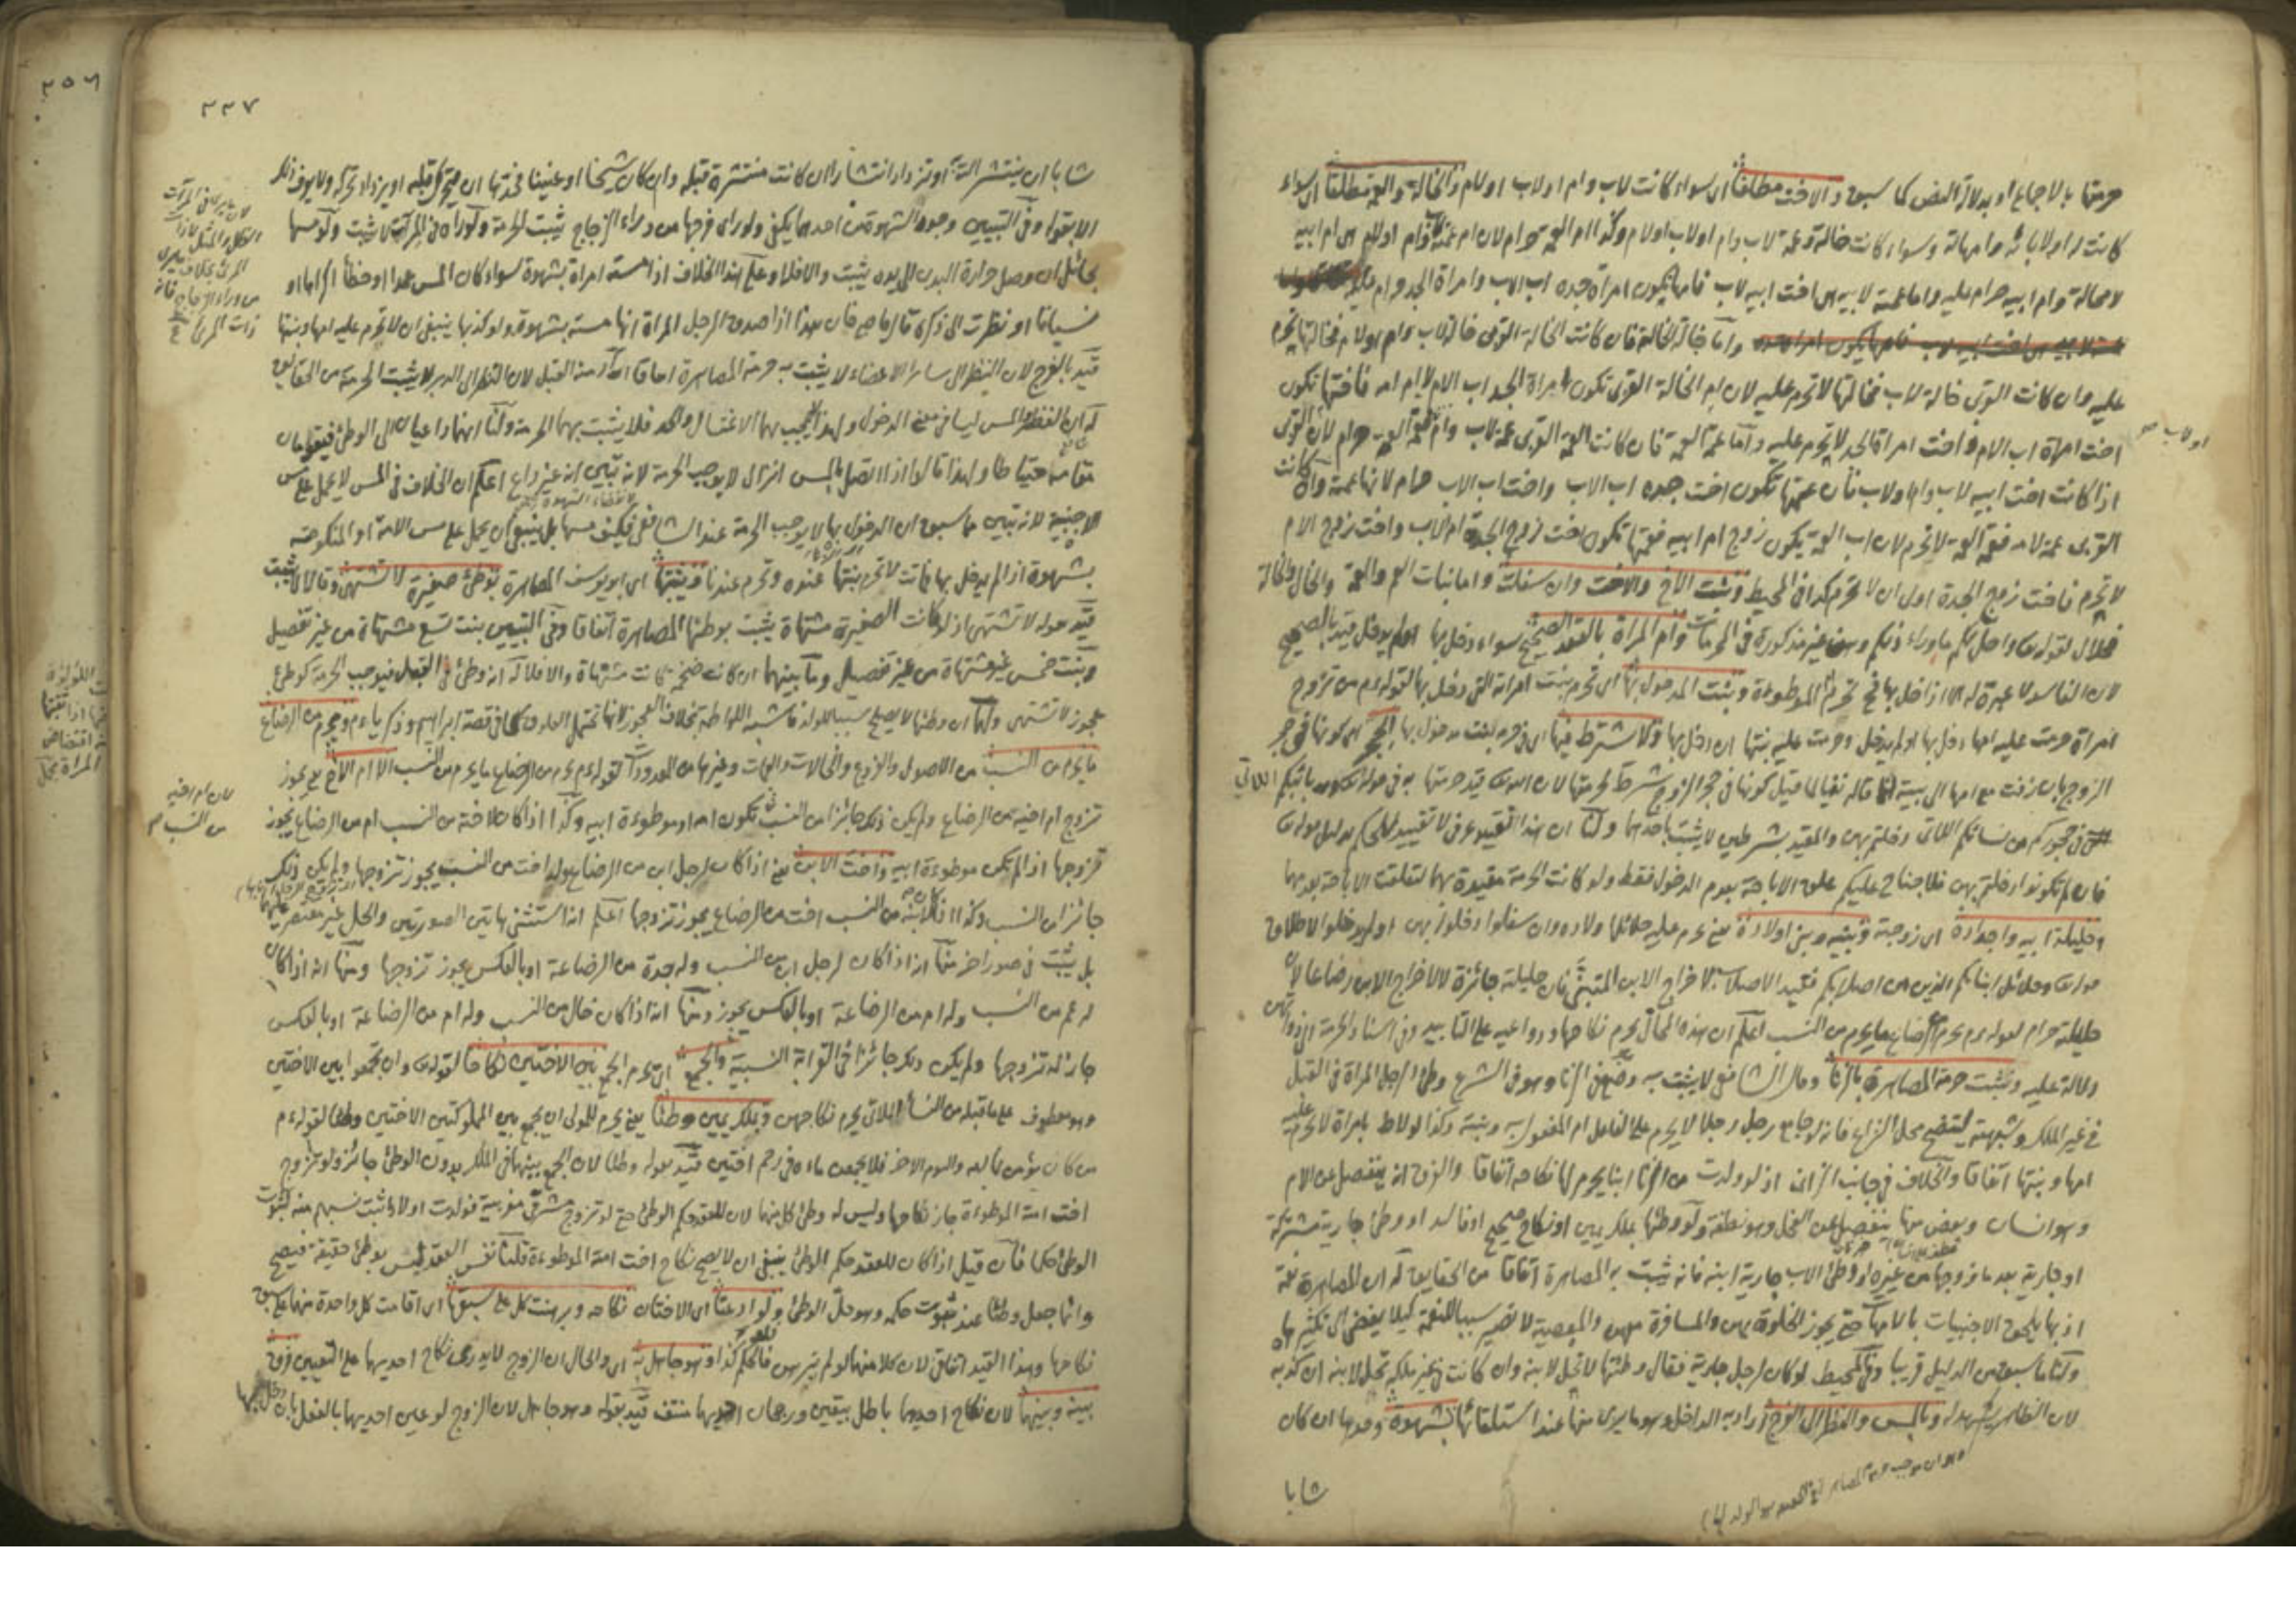 حرمتها بالاجماع او بدلالة النص كما سبق والاخت مطلقا اى سواء كانت لاب وام او لاب او لام والخالة والعمة مطلقا اى سواء
كانت له او لابائه وامهاته وسواء كانت خالة وعمة لاب وام او لاب او لام وكذا ام العمة حرام لان ام عمته لاب وام او لام هى ام ابيه
لا محالة وام ابيه حرام عليه واما عمته لابيه اى اخت ابيه لاب فامها يكون امرأة جده اب الاب وامرأة الجد حرام عليه
واما خالة الخالة فان كانت الخالة القربى خالة لاب وام او لام فخالتها يحرم
عليه وان كانت القربى خالة لاب فخالتها لا تحرم عليه لان ام الخالة القربى تكون امرأة الجد اب الام لا ام امه فاختها تكون
اخت امرأة اب الام واخت امرأة الجد لا تحرم عليه واما عمة العمة فان كانت العمة القربى عمة لاب وام فعمة العمة حرام لان القربى
او لاب صح
اذا كانت اخت ابيه لاب وام او لاب فان عمتها تكون اخت جده اب الاب واخت اب الاب حرام لانها عمته وان كانت
القربى عمة لام فعمة العمة لا تحرم لان اب العمة يكون زوج ام ابيه فعمتها تكون اخت زوج الجدة ام الاب واخت زوج الام
لا تحرم فاخت زوج الجدة اولى ان لا تحرم كذا فى المحيط وبنت الاخ والاخت وان سفلت واما بنات العم والعمة والخال والخالة
فحلال لقوله تعالى واحل لكم ما وراء ذلكم وهن غير مذكورة فى المحرمات وام امرأة بالعقد الصحيح سواء دخل بها او لم يدخل قيد بالصحيح
لان الفاسد لا عبرة له الا اذا دخل بها فح تحرم ام الموطوءة وبنت المدخول بها اى تحرم بنت امرأته التى دخل بها لقوله ء م من تزوج
امرأة حرمت عليه امها دخل بها او لم يدخل وحرمت عليه بنتها ان دخل بها ولا شرط فيها اى فى حرمة بنت مدخول بها الحجر اى كونها فى حجر
الزوج بان زفت مع امها الى بيته انما قاله نفيا لما قيل كونها فى حجر الزوج شرط لحرمتها لان الله تعالى قيد حرمتها به فى قوله تعالى وربائبكم اللاتى
فى حجوركم من نسائكم اللاتى دخلتم بهن والمقيد بشرطين لا يثبت باحدهما ولنا ان هذا التقييد عرفى لا تقييد للحكم بدليل قوله تعالى
فان لم تكونوا دخلتم بهن فلا جناح عليكم علق الاباحة بعدم الدخول فقط ولو كانت الحرمة مقيدة بهما لتعلقت الاباحة بعدمهما
وحليلة ابيه واجداده اى زوجته وبنيه وبنى اولاده يعنى يحرم عليه حلائل اولاده وان سفلوا دخلوا بهن او لم يدخلوا لاطلاق
قوله تعالى وحلائل ابنائكم الذين من اصلابكم فقيد الاصلاب لاخراج الابن المتبنى فان حليلته جائزة لا لاخراج الابن رضاعا لان
حليلته حرام لقوله ء م يحرم من الرضاع ما يحرم من النسب اعلم ان هذه المحال يحرم نكاحها ودواعيه على التأبيد وفى اسناد الحرمة الى ذواتهن
دلالة عليه وتثبت حرمة المصاهرة بالزنا وقال الشافعى لا يثبت به وضع فى الزنا وهو فى الشرع وطئ الرجل المرأة فى القبل
فى غير الملك وشبهته ليتضح محل النزاع فانه لو جامع رجل رجلا لا يحرم على الفاعل ام المفعول به وبنته وكذا لو لاط بامرأة لا تحرم عليه
امها وبنتها اتفاقا والخلاف فى جانب الزانى اذ لو ولدت من الزنا ابنا يحرم لها نكاحه اتفاقا والفرق انه ينفصل عن الام
وهو انسان وبعض منها ينفصل عن الفحل وهو نطفة ولو وطئها بملك يمين او نكاح صحيح او فاسد او وطئ جارية مشتركة
او جارية بعد ما زوجها من غيره او وطئ الاب جارية ابنه فانه يثبت به المصاهرة اتفاقا من الحقايق له ان المصاهرة نعمة
اذ بها يلحق الاجنبيات بالامهات حتى يجوز الخلوة بهن والمسافرة معهن والمعصية لا تصير سببا للنعمة كيلا يفضى الى تكثيرها
ولنا ما سبق من الدليل قريبا وفى المحيط لو كان لرجل جارية فقال وطئتها لا تحل لابنه وان كانت فى غير ملكه تحل لابنه ان كذبه
لان الظاهر يشهد له وبالمس والنظر الى الفرج اراد به الداخل وهو ما يرى منها عند استلقائها بشهوة وحدها ان كان
شابا
٢٢٧
شابا ان ينتشر آلته او تزداد انتشارا ان كانت منتشرة قبله وان كان شيخا او عنينا فحدها ان يتحرك قلبه او يزداد تحركه ولا يعرف ذلك
الا بقوله وفى التبيين وجود الشهوة من احدهما يكفى ولو رأى فرجها من وراء الزجاج يثبت الحرمة ولو رآه فى المرآة لا يثبت ولو مسها
بحائل ان وصل حرارة البدن الى يده يثبت والا فلا وعلى هذا الخلاف اذا مسته امرأة بشهوة سواء كان المس عمدا او خطأ او اكراها او
نسيانا او نظرت الى ذكره قال قاضيخان هذا اذا صدق الرجل المرأة انها مسته بشهوة ولو كذبها ينبغى ان لا تحرم عليه امها وبنتها
قيد بالفرج لان النظر الى سائر الاعضاء لا يثبت به حرمة المصاهرة اتفاقا اراد منه القبل لان النظر الى الدبر لا يثبت الحرمة من الحقايق
له ان النظر والمس ليسا فى معنى الدخول ولهذا لا يجب بهما الاغتسال والحد فلا يثبت بهما الحرمة ولنا انهما داعيان الى الوطئ فيقومان
مقامه احتياطا ولهذا قالوا اذا اتصل بالمس انزال لا يوجب الحرمة لانه تبين انه غير داع اعلم ان الخلاف فى المس لا يحمل على مس
الاجنبية لانه تبين مما سبق ان الدخول بها لا يوجب الحرمة عند الشافعى فكيف مسها بل ينبغى ان يحمل على مس الامة او المنكوحة
بشهوة اذا لم يدخل بها فانت لا تحرم بنتها عنده وتحرم عندنا ويثبتها اى ابو يوسف المصاهرة بوطئ صغيرة لا تشتهى وقالا لا يثبت
قيد بقوله لا تشتهى اذ لو كانت الصغيرة مشتهاة يثبت بوطئها المصاهرة اتفاقا وفى التبيين بنت تسع مشتهاة من غير تفصيل
وبنت خمس غير مشتهاة من غير تفصيل وما بينهما ان كانت ضخمة كانت مشتهاة والا فلا له انه وطئ فى القبل فيوجب الحرمة كوطئ
عجوز لا تشتهى ولهما ان وطئها لا يصلح سببا للولد فاشبه اللواطة بخلاف العجوز لانها تحتمل العلوق كما فى قصة ابراهيم وذكرياء ء م ويحرم من الرضاع
ما يحرم من النسب من الاصول والفروع والخالات والعمات وغيرها من المعدودات لقوله ء م يحرم من الرضاع ما يحرم من النسب الا ام الاخ يعنى يجوز
تزوج ام اخيه من الرضاع ولم يكن ذلك جائزا من النسب لان ام اخيه من النسب تكون امه او موطوءة ابيه وكذا اذا كان لاخته من النسب ام من الرضاع يجوز
تزوجها اذا لم تكن موطوءة ابيه واخت الابن يعنى اذا كان لرجل ابن من الرضاع وله اخت من النسب يجوز تزوجها ولم يكن ذلك
جائزا من النسب وكذا ان كان لابنه من النسب اخت من الرضاع يجوز تزوجها اعلم انه استثنى هاتين الصورتين والحل غير مقتصر عليهما
بل يثبت فى صور اخر منها انه اذا كان لرجل ابن من النسب وله جدة من الرضاعة او بالعكس يجوز تزوجها ومنها انه اذا كان
له عم من النسب وله ام من الرضاعة او بالعكس يجوز ومنها انه اذا كان خال من النسب وله ام من الرضاعة او بالعكس
جاز له تزوجها ولم يكن ذلك جائزا فى القرابة النسبية والجمع اى يحرم الجمع بين الاختين نكاحا لقوله تعالى وان تجمعوا بين الاختين
وهو معطوف على ما قبله من النساء اللاتى يحرم نكاحهن وبملك يمين وطئا يعنى يحرم للمولى ان يجمع بين المملوكتين الاختين وطئا لقوله ء م
من كان يؤمن بالله واليوم الاخر فلا يجمعن ماءه فى رحم اختين قيد بقوله وطئا لان الجمع بينهما فى الملك بدون الوطئ جائز ولو تزوج
اخت امته الموطوءة جاز نكاحها وليس له وطئ كل منهما لان للعقد حكم الوطئ حتى لو تزوج مشرقى مغربية فولدت اولادا يثبت نسبهم منه لثبوت
الوطئ حكما فان قيل اذا كان للعقد حكم الوطئ ينبغى ان لا يصح نكاح اخت امته الموطوءة قلنا نفس العقد ليس بوطئ حقيقة فيصح
وانما جعل وطئا عند ثبوت حكمه وهو حل الوطئ ولو ادعتا اى الاختان نكاحه وبرهنت كل على سبقها اى اقامت كل واحدة منهما على سبق
نكاحها وهذا القيد اتفاقى لان كلا منهما لو لم تبرهن فالحكم كذا وهو جاهل به اى والحال ان الزوج لا يدرى نكاح احديهما على التعيين فرق
بينه وبينهما لان نكاح احديهما باطل بيقين ورجحان احديهما منتف قيد بقوله وهو جاهل لان الزوج لو عين احديهما بالفعل بان دخل بها
لان ام اخيه
من النسب صح
٢٥٦